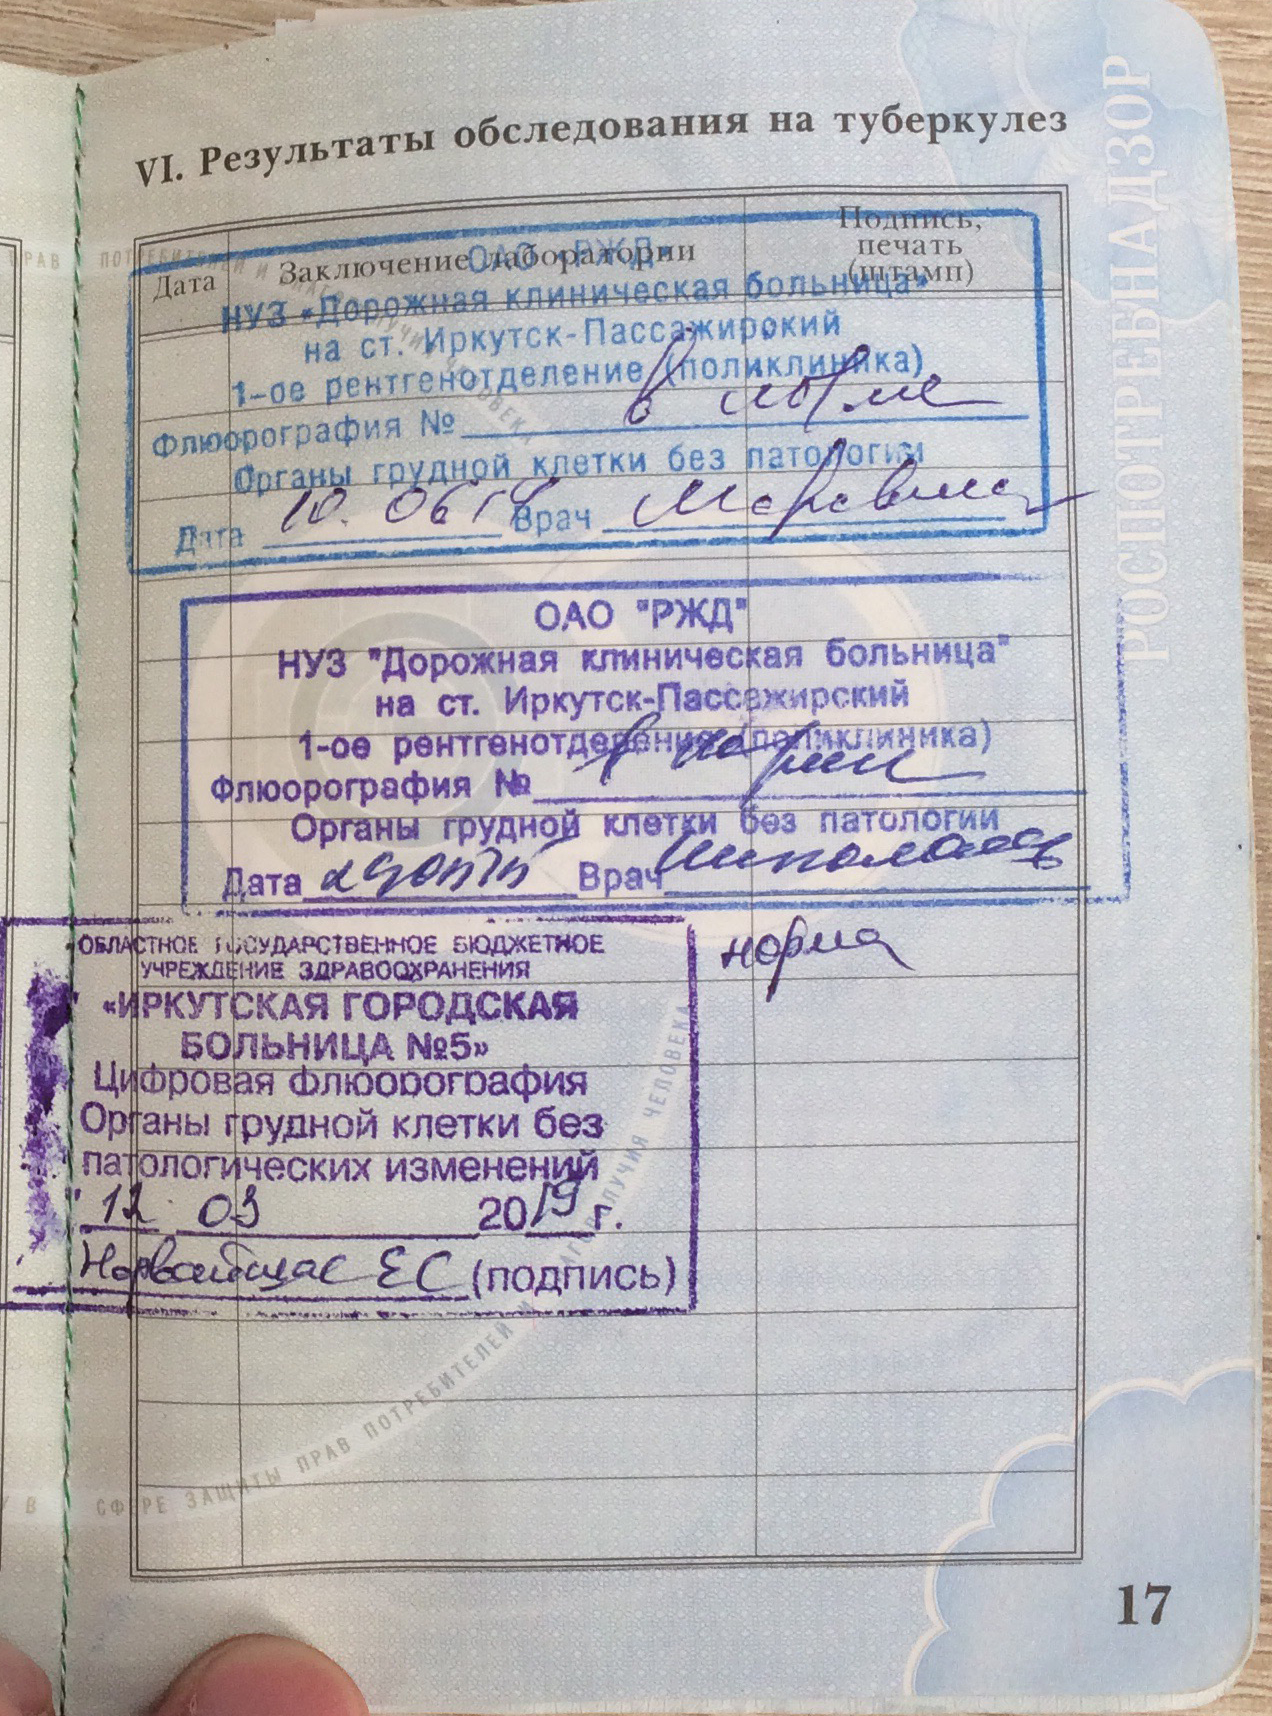 VI. Результаты обследования на туберкулез
Дата
Заключение лаборатории
Подпись,
печать
(штамп)
ОАО «РЖД»
НУЗ «Дорожная клиническая больница»
на ст. Иркутск-Пассажирский
1-ое рентгенотделение (поликлиника)
Флюорография № в норме
Органы грудной клетки без патологии
Дата 10. 06 Врач
ОАО "РЖД"
НУЗ "Дорожная клиническая больница"
на ст. Иркутск-Пассажирский
1-ое рентгенотделение (поликлиника)
Флюорография №
Органы грудной клетки без патологии
Дата Врач
ОБЛАСТНОЕ ГОСУДАРСТВЕННОЕ БЮДЖЕТНОЕ
УЧРЕЖДЕНИЕ ЗДРАВООХРАНЕНИЯ
«ИРКУТСКАЯ ГОРОДСКАЯ
БОЛЬНИЦА №5»
Цифровая флюорография
Органы грудной клетки без
патологических изменений
12 03 2019 г.
ЕС (подпись)
норма
РОСПОТРЕБНАДЗОР
СФЕРЕ ЗАЩИТЫ ПРАВ ПОТРЕБИТЕЛЕЙ И БЛАГОПОЛУЧИЯ ЧЕЛОВЕКА
17